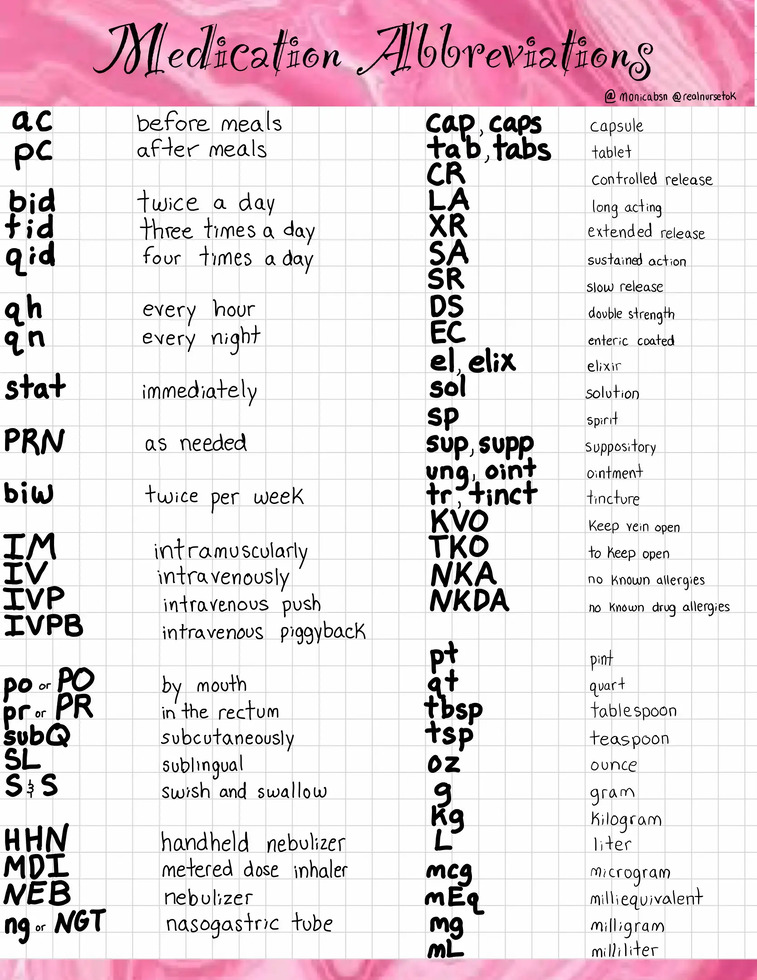 Medication Abbreviations
@monicabsn @realnursetok
ac before meals
pc after meals
bid twice a day
tid three times a day
qid four times a day
qh every hour
qn every night
stat immediately
PRN as needed
biw twice per week
IM intramuscularly
IV intravenously
IVP intravenous push
IVPB intravenous piggyback
po or PO by mouth
pr or PR in the rectum
subQ subcutaneously
SL sublingual
S & S swish and swallow
HHN handheld nebulizer
MDI metered dose inhaler
NEB nebulizer
ng or NGT nasogastric tube
cap, caps capsule
tab, tabs tablet
CR controlled release
LA long acting
XR extended release
SA sustained action
SR slow release
DS double strength
EC enteric coated
el, elix elixir
sol solution
sp spirit
sup, supp suppository
ung, oint ointment
tr, tinct tincture
KVO Keep vein open
TKO to keep open
NKA no known allergies
NKDA no known drug allergies
pt pint
qt quart
tbsp tablespoon
tsp teaspoon
oz ounce
g gram
kg kilogram
L liter
mcg microgram
mEq milliequivalent
mg milligram
mL milliliter